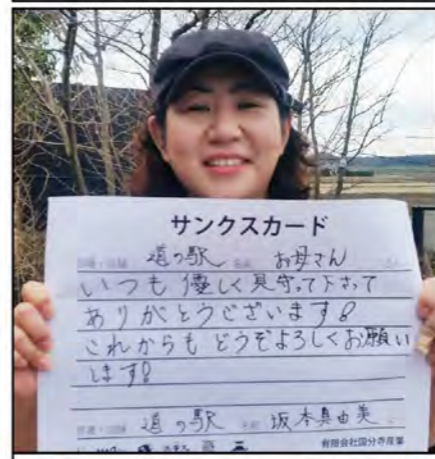 サンクスカード
道の駅 お母さん
いつも優しく見守って下さって
ありがとうございます!
これからもどうぞよろしくお願い
します!
道の駅 坂本真由美
有限会社国分寺産業